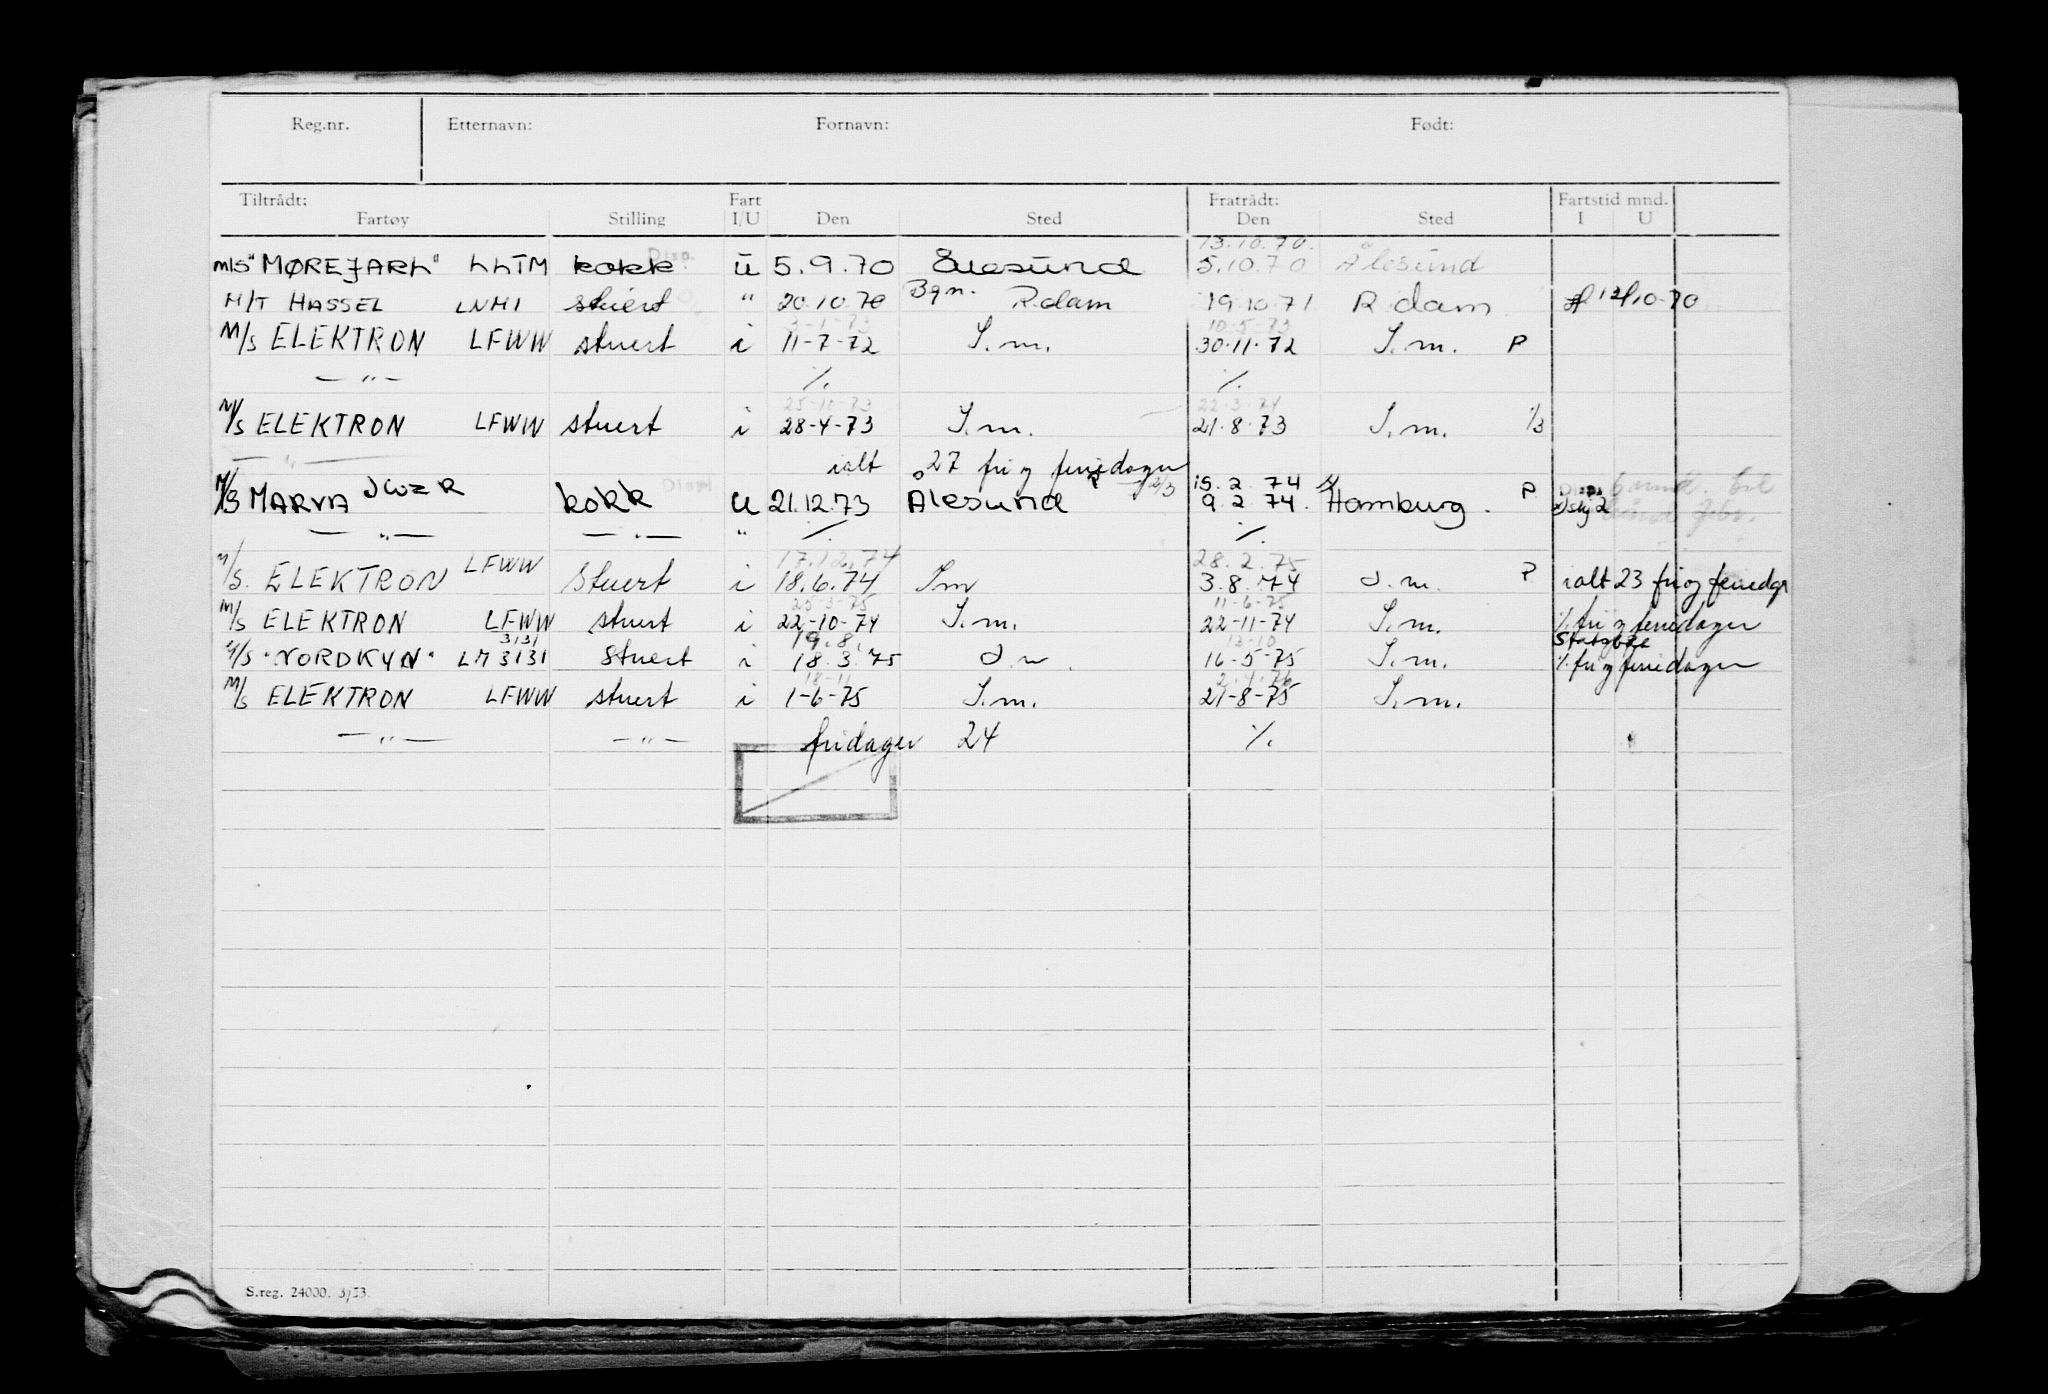 Reg.nr. Etternavn: Fornavn: Født:
Tiltrådt: Fart Fratrådt: Fartstid mnd.
Fartøy Stilling I/U Den Sted Den Sted I U
13.10.70.
M/S "MØREJARL" LLTM kokk Disp. U 5.9.70 Ålesund 5.10.70 Ålesund
M/T HASSEL LNMI stuert " 20.10.70 Bgn. R.dam 19.10.71 R.dam 12/10-70
3-1-73 10-5-73
M/S ELEKTRON LFWW stuert i 11-7-72 S.m. 30.11.72 S.m. P
— " — ./. ./.
25-10-73 22-3-74
M/S ELEKTRON LFWW stuert i 28-4-73 S.m. 21.8.73 S.m. 1/3
— " — ialt 27 fri og feriedager
15.2.74
M/S MARVA JWZR kokk U 21.12.73 Ålesund 9.2.74. Hamburg. P
— " — — " — " ./. ./.
17.12.74 28.2.75
M/S. ELEKTRON LFWW Stuert i 18.6.74 Sm 3.8.74 S.m. P ialt 23 fri og feriedgr
25-3-75 11-6-75
M/S ELEKTRON LFWW stuert i 22-10-74 S.m. 22-11-74 S.m. ./. fri og feriedager
3131 19.8. 13-10
M/S "NORDKYN" LM 3131 Stuert i 18.3.75 S.m. 16-5-75 S.m. ./. fri og feriedager
18-11 2-4-76
M/S ELEKTRON LFWW stuert i 1-6-75 S.m. 21-8-75 S.m.
— " — — " — fridager 24 ./.
S.reg. 24000. 3/53.